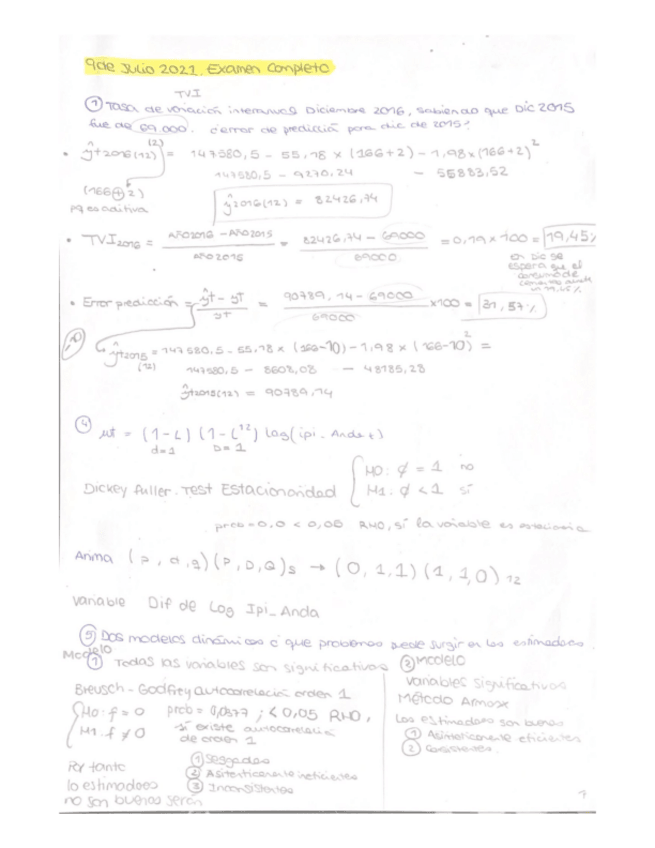 9 de Julio 2021. Examen Completo
TVI
① Tasa de variación interanual Diciembre 2016, sabiendo que Dic 2015
fue de 69.000. ¿error de predicción para dic de 2015?
• ŷt2016(12) = 147580,5 - 55,18 × (166+2) - 1,98 × (166+2)²
(12)
147580,5 - 9270,24 - 55883,52
(166+2)
pq es aditiva
ŷ2016(12) = 82426,74
• TVI2016 = AÑO2016 - AÑO2015 / AÑO2016 = 82426,74 - 69000 / 69000 = 0,19 × 100 = 19,45%
en Dic se
espera que el
consumo de
• Error predicción = ŷt - yt / yt = 90789,14 - 69000 / 69000 × 100 = 31,57%
ŷt2015(12) = 147580,5 - 55,18 × (166-10) - 1,98 × (166-10)² =
147580,5 - 8608,08 - 48185,28
ŷt2015(12) = 90789,14
④ wt = (1-L) (1-L¹²) Log(ipi_Anda t)
d=1 D=1
Dickey Fuller. Test Estacionaridad { H0: ϕ = 1 no
H1: ϕ < 1 sí
prob = 0,0 < 0,05 RH0, sí la variable es estacionaria
Arima (p, d, q) (P, D, Q)s → (0, 1, 1) (1, 1, 0)12
Variable Dif de Log Ipi_Anda
⑤ Dos modelos dinámicos ¿ que problemas puede surgir en los estimadores
Modelo
① Todas las variables son significativas
Breusch - Godfrey autocorrelació orden 1
{ H0: ρ = 0 prob = 0,0377 ; < 0,05 RH0,
H1: ρ ≠ 0 sí existe autocorrelació
de orden 1
Por tanto
lo estimadoes
no son buenos serán
① Sesgados
② Asitenticamente ineficientes
③ Inconsistentes
② Modelo
variables significativas
Método Armax
Los estimadores son buenos
① Asintoticamente eficientes
② Consistentes.
1